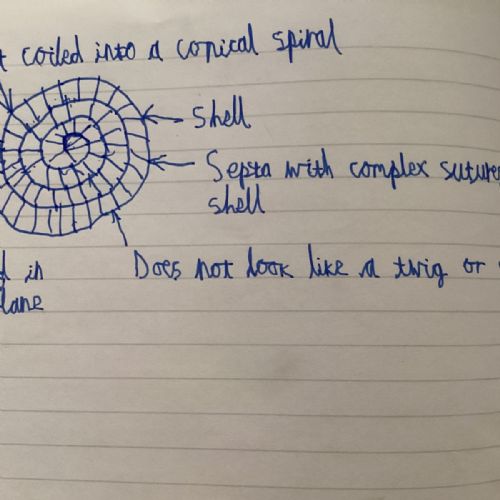 t coiled into a conical spiral
Shell
Septa with complex sutures
shell
d in
Does not look like a twig or
lane